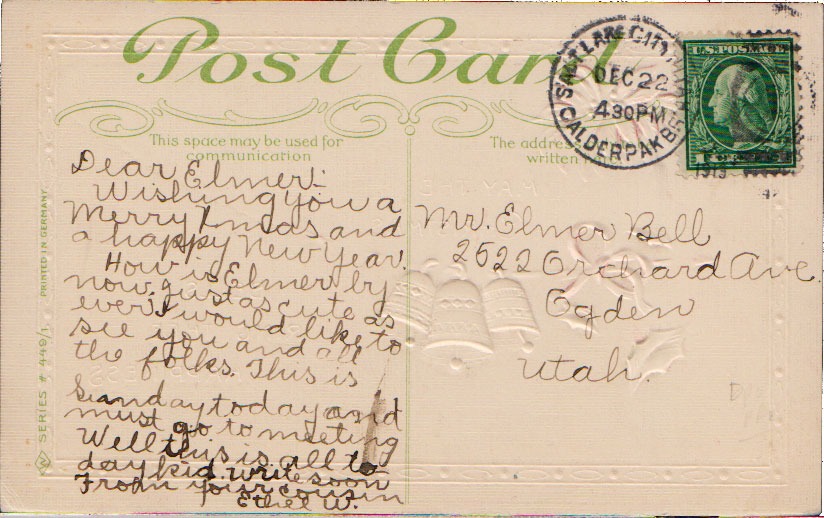 Post Card
This space may be used for
communication
The address
written
SALT LAKE CITY,
DEC 22
4 30 PM
CALDER PARK
1913
U.S. POSTAGE
Dear Elmer:
Wishing you a
Merry Xmas and
a happy New Year.
How is Elmer by
now, just as cute as
ever. I would like to
see you and all
the folks. This is
Sunday today and
must go to meeting
Well this is all to
day kid. write soon
From your cousin
Ethel W.
Mr. Elmer Bell
2522 Orchard Ave.
Ogden
Utah.
SERIES # 449/1. PRINTED IN GERMANY